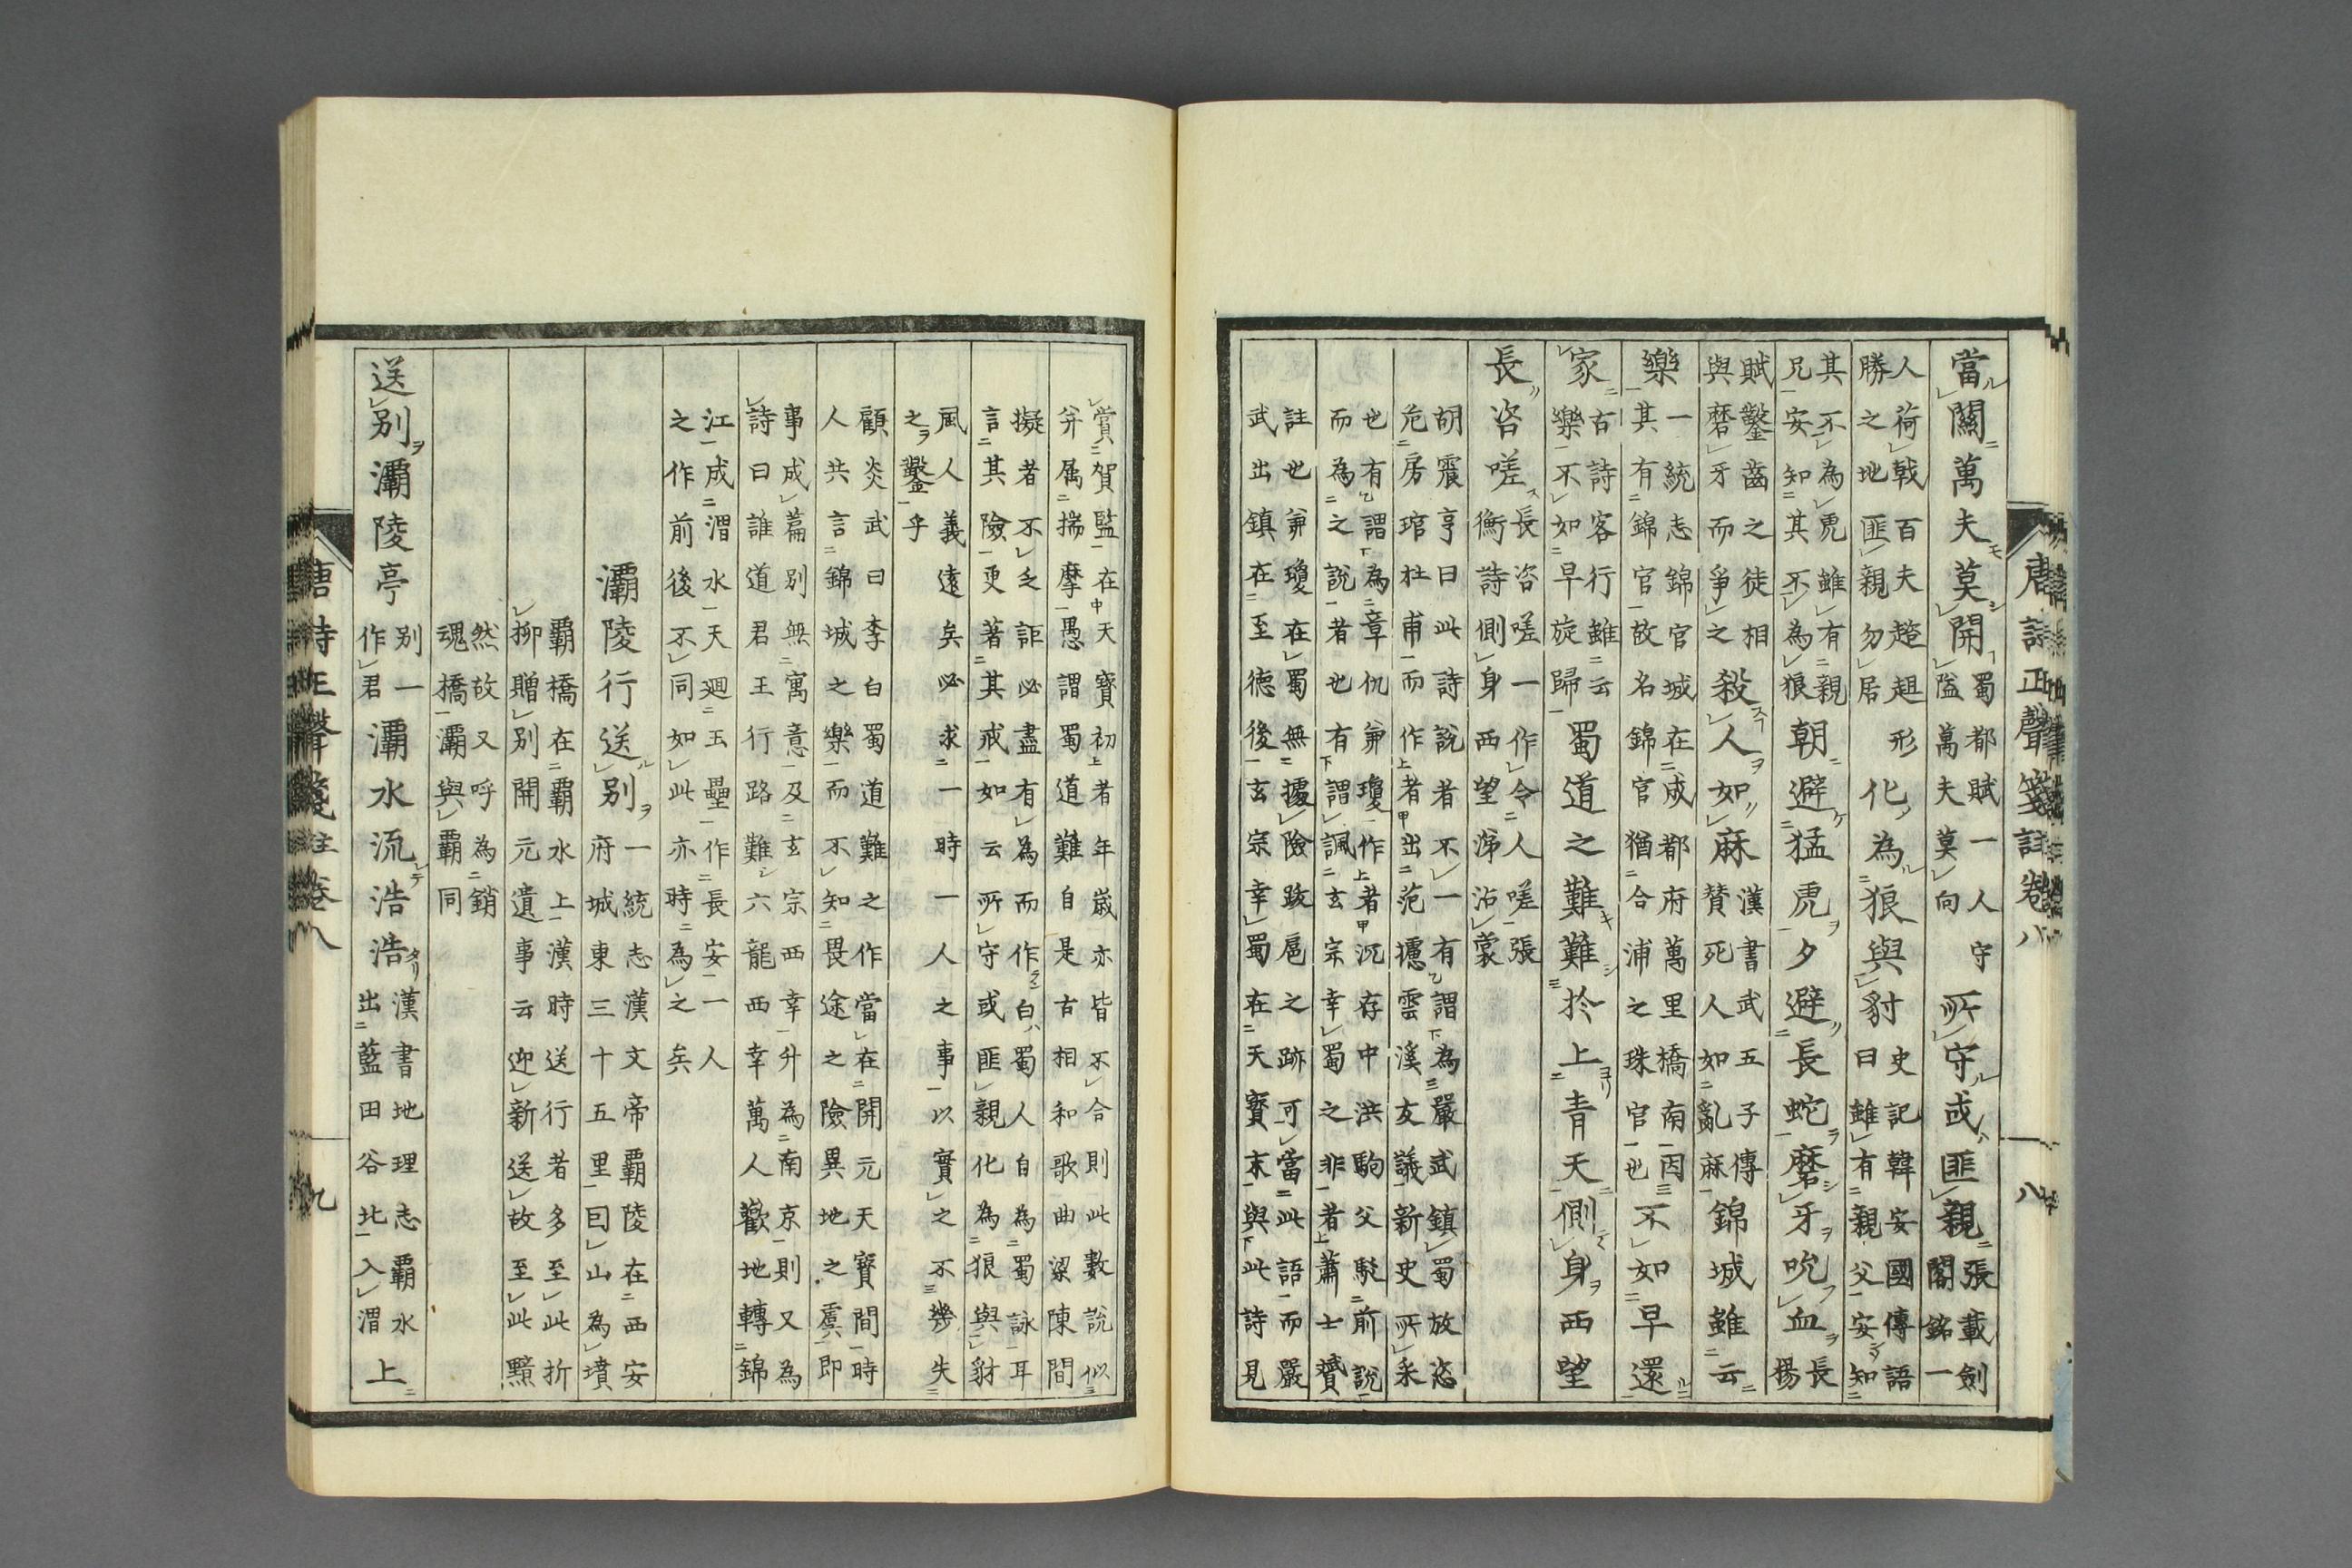 唐詩正聲箋註卷八
八
當關萬夫莫開蜀都賦一人守隘萬夫莫向所守或匪親張載劍閣銘一
人荷戟百夫趑趄形勝之地匪親勿居化為狼與豺史記韓安國傳語曰雖有親父安知
其不為虎雖有親兄安知其不為狼朝避猛虎夕避長蛇磨牙吮血長楊
賦鑿齒之徒相與磨牙而爭之殺人如麻漢書武五子傳贊死人如亂麻錦城雖云
樂一統志錦官城在成都府萬里橋南因其有錦官故名錦官猶合浦之珠官也不如早還
家古詩客行雖云樂不如早旋歸蜀道之難難於上青天側身西望
長咨嗟長咨嗟一作令人嗟張衡詩側身西望涕沾裳
胡震亨曰此詩說者不一有謂為嚴武鎮蜀放恣危房琯杜甫而作者出范攄雲溪友議新史所采
也有謂為章仇兼瓊作者沉存中洪駒父駁前說而為之說者也有謂諷玄宗幸蜀之非者蕭士贇
註也兼瓊在蜀無據險跋扈之跡可當此語而嚴武出鎮在至德後玄宗幸蜀在天寶末與此詩見
賞賀監在天寶初者年歲亦皆不合則此數說似并属揣摩愚謂蜀道難自是古相和歌曲梁陳間
擬者不乏詎必盡有為而作白蜀人自為蜀詠耳言其險更著其戒如云所守或匪親化為狼與豺
風人義遠矣必求一時一人之事以實之不幾失之鑿乎
顧炎武曰李白蜀道難之作當在開元天寶間時人共言錦城之樂而不知畏途之險異地之虞即
事成篇別無寓意及玄宗西幸升為南京則又為詩曰誰道君王行路難六龍西幸萬人歡地轉錦
江成渭水天廻玉壘作長安一人之作前後不同如此亦時為之矣
灞陵行送別一統志漢文帝霸陵在西安府城東三十五里曰山為墳
霸橋在霸水上漢時送行者多至此折柳贈別開元遺事云迎新送故至此黯
然故又呼為銷魂橋灞與霸同
送別灞陵亭別一作君灞水流浩浩漢書地理志霸水出藍田谷北入渭上
唐詩正聲箋註卷八
九